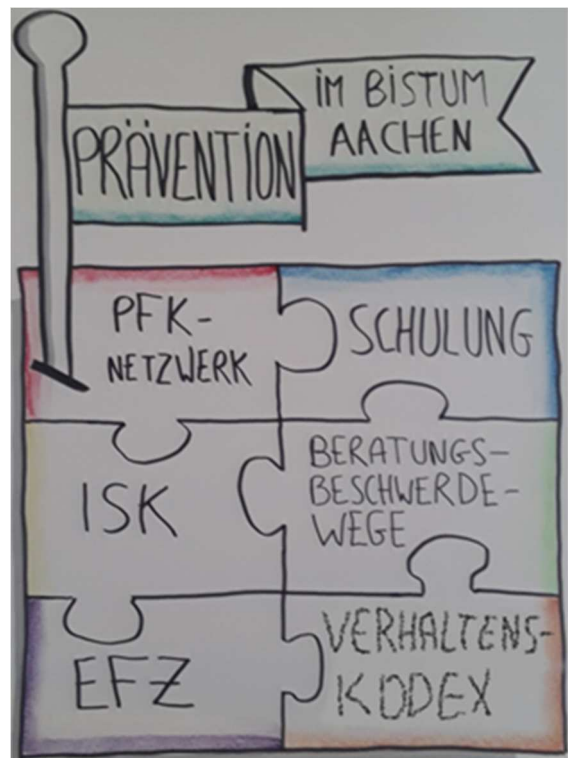 PRÄVENTION
IM BISTUM
AACHEN
PFK-
NETZWERK
SCHULUNG
ISK
BERATUNGS-
BESCHWERDE-
WEGE
EFZ
VERHALTENS-
KODEX